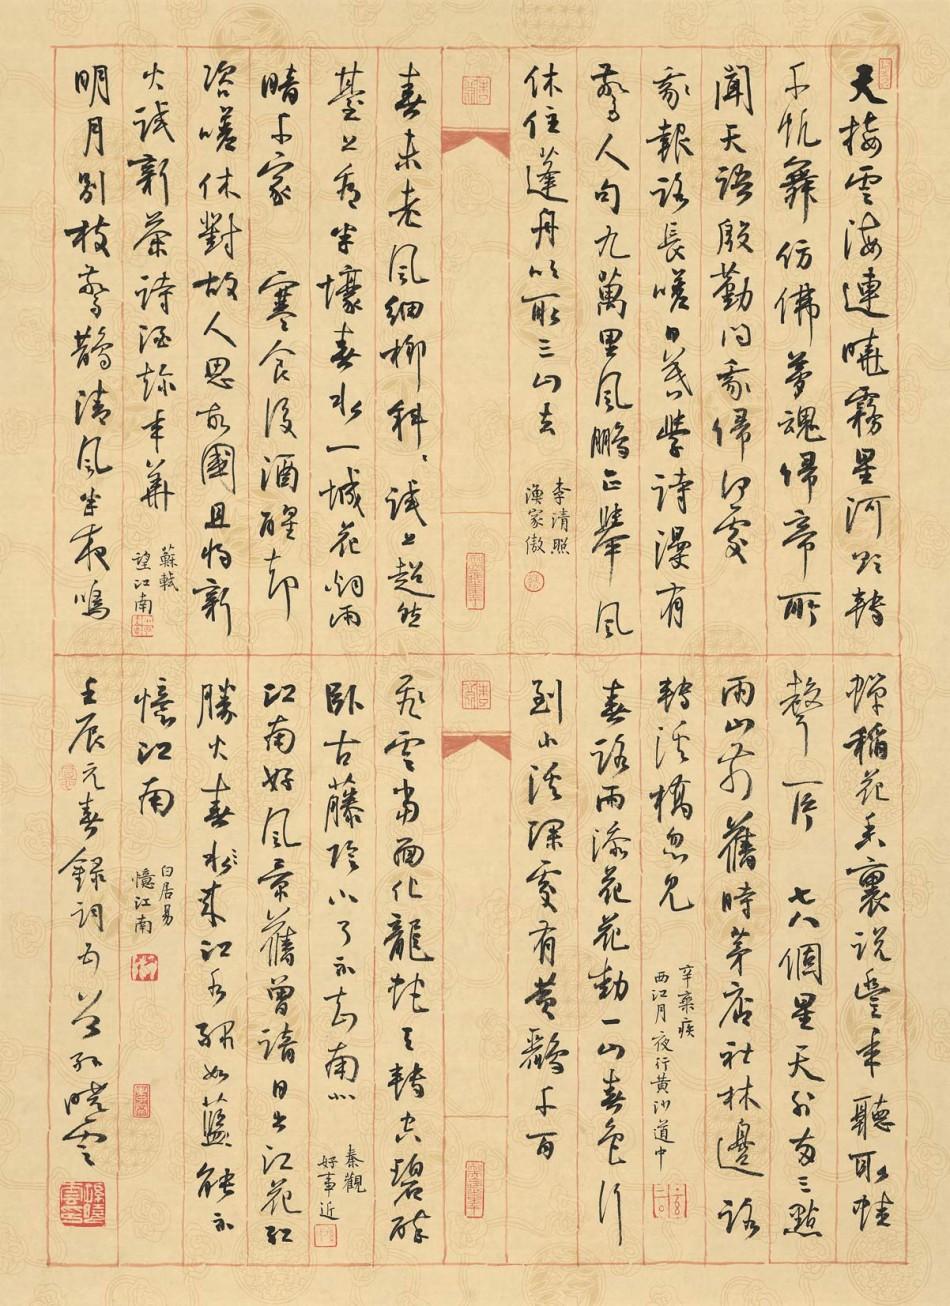 天接雲海連曉霧星河欲轉
千帆舞仿佛夢魂歸帝所
聞天語殷勤問我歸何處
我報路長嗟日暮學詩漫有
驚人句九萬里風鵬正舉風
休住蓬舟吹取三山去
李清照
漁家傲
春未老風細柳斜〻試上超然
臺上看半壕春水一城花煙雨
暗千家 寒食後酒醒卻
咨嗟休對故人思故國且將新
火試新茶詩酒趁年華
蘇軾
望江南
明月別枝驚鵲清風半夜鳴
蟬稻花香裏說豐年聽取蛙
聲一片 七八個星天外兩三點
雨山前舊時茅店社林邊路
轉溪橋忽見
辛棄疾
西江月夜行黃沙道中
春路雨添花花動一山春色行
到小溪深處有黃鸝千百
飛雲當面化龍蛇夭轉空碧醉
臥古藤陰下了不知南北
秦觀
好事近
江南好風景舊曾諳日出江花紅
勝火春水來江水綠如藍能不
憶江南
白居易
憶江南
壬辰元春錄詞五首孫曉雲